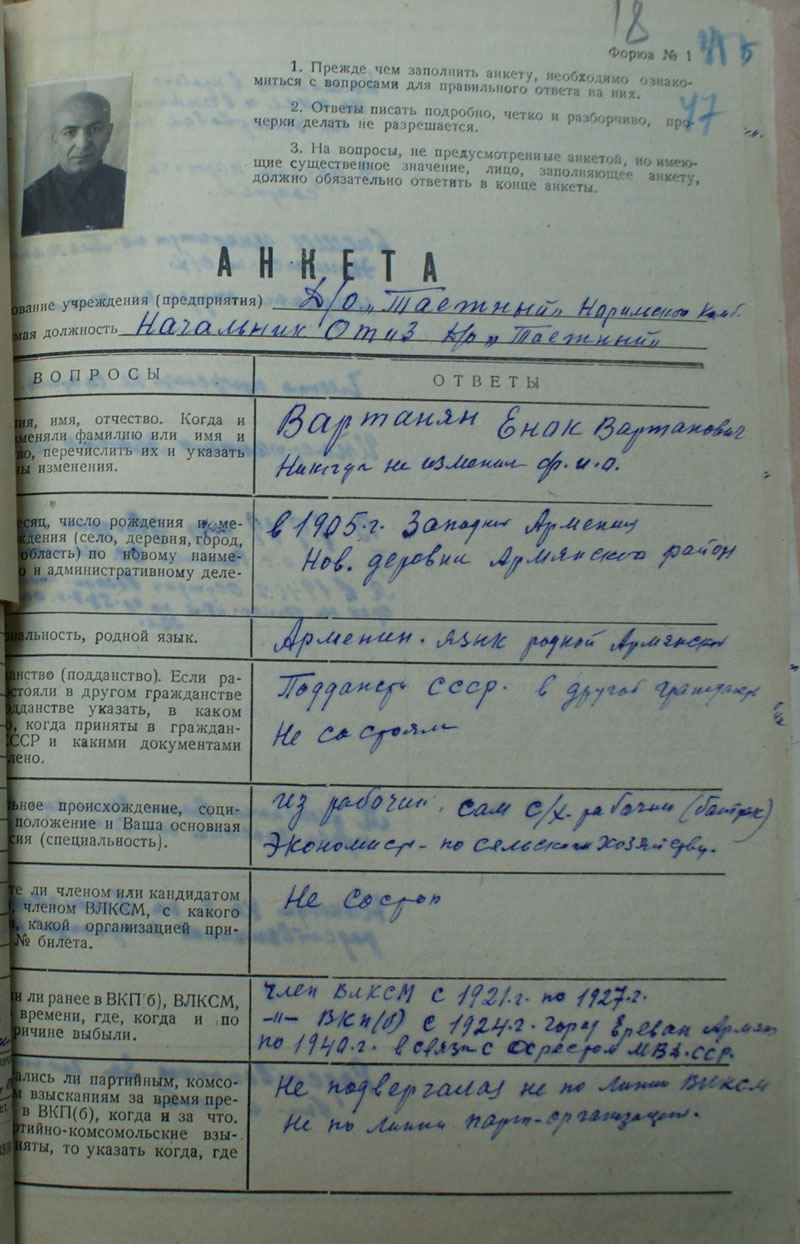 18
Форма № 1
5
47
1. Прежде чем заполнить анкету, необходимо ознако-
миться с вопросами для правильного ответа на них.
2. Ответы писать подробно, четко и разборчиво, про-
черки делать не разрешается.
3. На вопросы, не предусмотренные анкетой, но имею-
щие существенное значение, лицо, заполняющее анкету,
должно обязательно ответить в конце анкеты.
АНКЕТА
ование учреждения (предприятия) „Таежный"
мая должность Начальник ОТиЗ „Таежный"
ВОПРОСЫ
ОТВЕТЫ
ия, имя, отчество. Когда и
меняли фамилию или имя и
во, перечислить их и указать
ы изменения.
Вартанян Енок Вартанович
Никогда не изменил ф. и. о.
есяц, число рождения и ме-
ждения (село, деревня, город,
область) по новому наиме-
и административному деле-
в 1905 г. Западн Армения
Нов. деревни Армянского район
альность, родной язык.
Арменин. язик родной Армянски
анство (подданство). Если ра-
стояли в другом гражданстве
дданстве указать, в каком
, когда приняты в граждан-
ССР и какими документами
лено.
СССР. в другой
Не состоял
ьное происхождение, соци-
положение и Ваша основная
сия (специальность).
из рабочий, сам с/х. рабочий (батрак)
Экономист - по хозяйству.
е ли членом или кандидатом
членом ВЛКСМ, с какого
, какой организацией при-
№ билета.
Не состоял
и ли ранее в ВКП(б), ВЛКСМ,
времени, где, когда и по
ричине выбыли.
Член ВЛКСМ с 1921 г. по 1927 г.
-"- ВКП(б) с 1924 г. город Ереван
по 1940 г. в связи с арестом МВД. ССР.
ались ли партийным, комсо-
м взысканиям за время пре-
в ВКП(б), когда и за что.
ртийно-комсомольские взы-
няты, то указать когда, где
Не подвергался не по линии ВЛКСМ
Не по линии парт-организации.